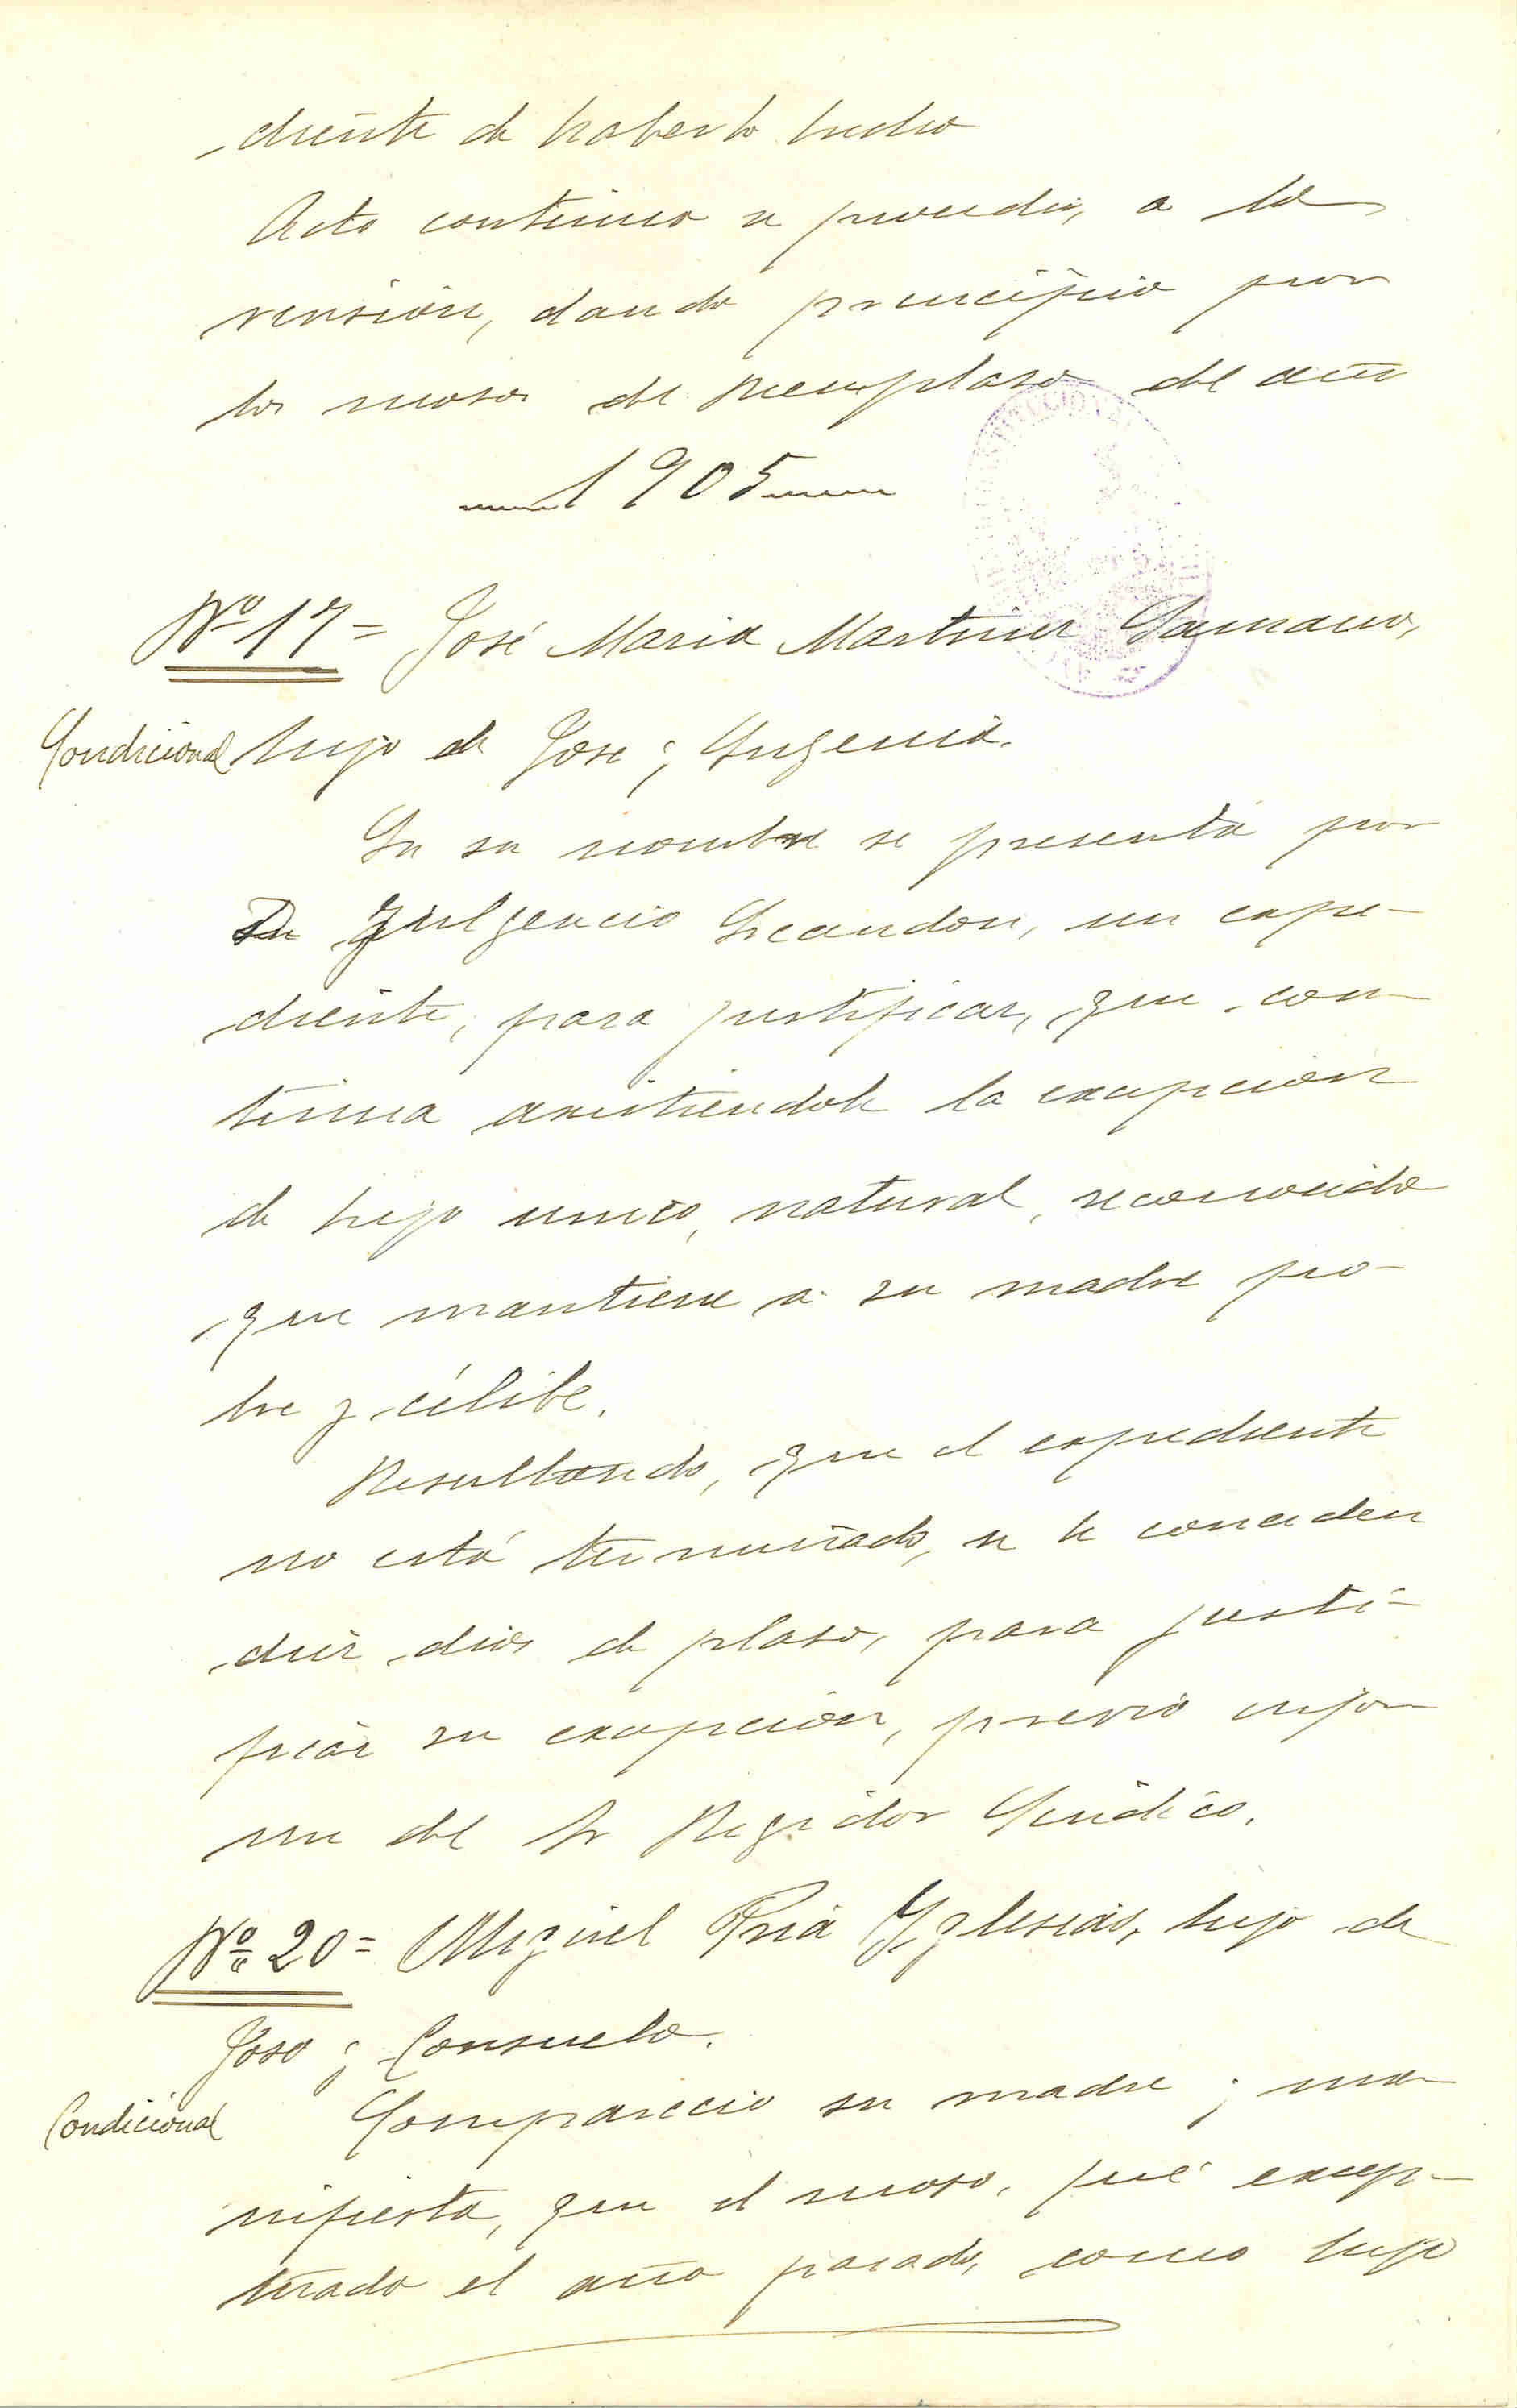 diente de haberlo hecho
Acto continuo se procedió, a la
revisión, dando principio por
los mosos del Reemplaso del año
1905
Nº 17 = José Maria Martines Samano,
Condicional hijo de Jose y Eugenia.
En su nombre se presenta por
Dn Fulgencio Escandon, un expe-
diente, para justificar, que con-
tinua asistiendole la excepcion
de hijo unico, natural, reconocido
que mantiene a su madre po-
bre y célibe.
Resultando, que el expediente
no está terminado, se le conceden
diez dias de plaso, para justi-
ficar su excepcion, previo infor
me del Sr Regidor Sindico.
Nº 20 = Miguel Pria Yglesias, hijo de
Jose y Consuelo.
Condicional Comparecio su madre y ma
nifiesta, que el moso, fué excep-
tuado el año pasado, como hijo